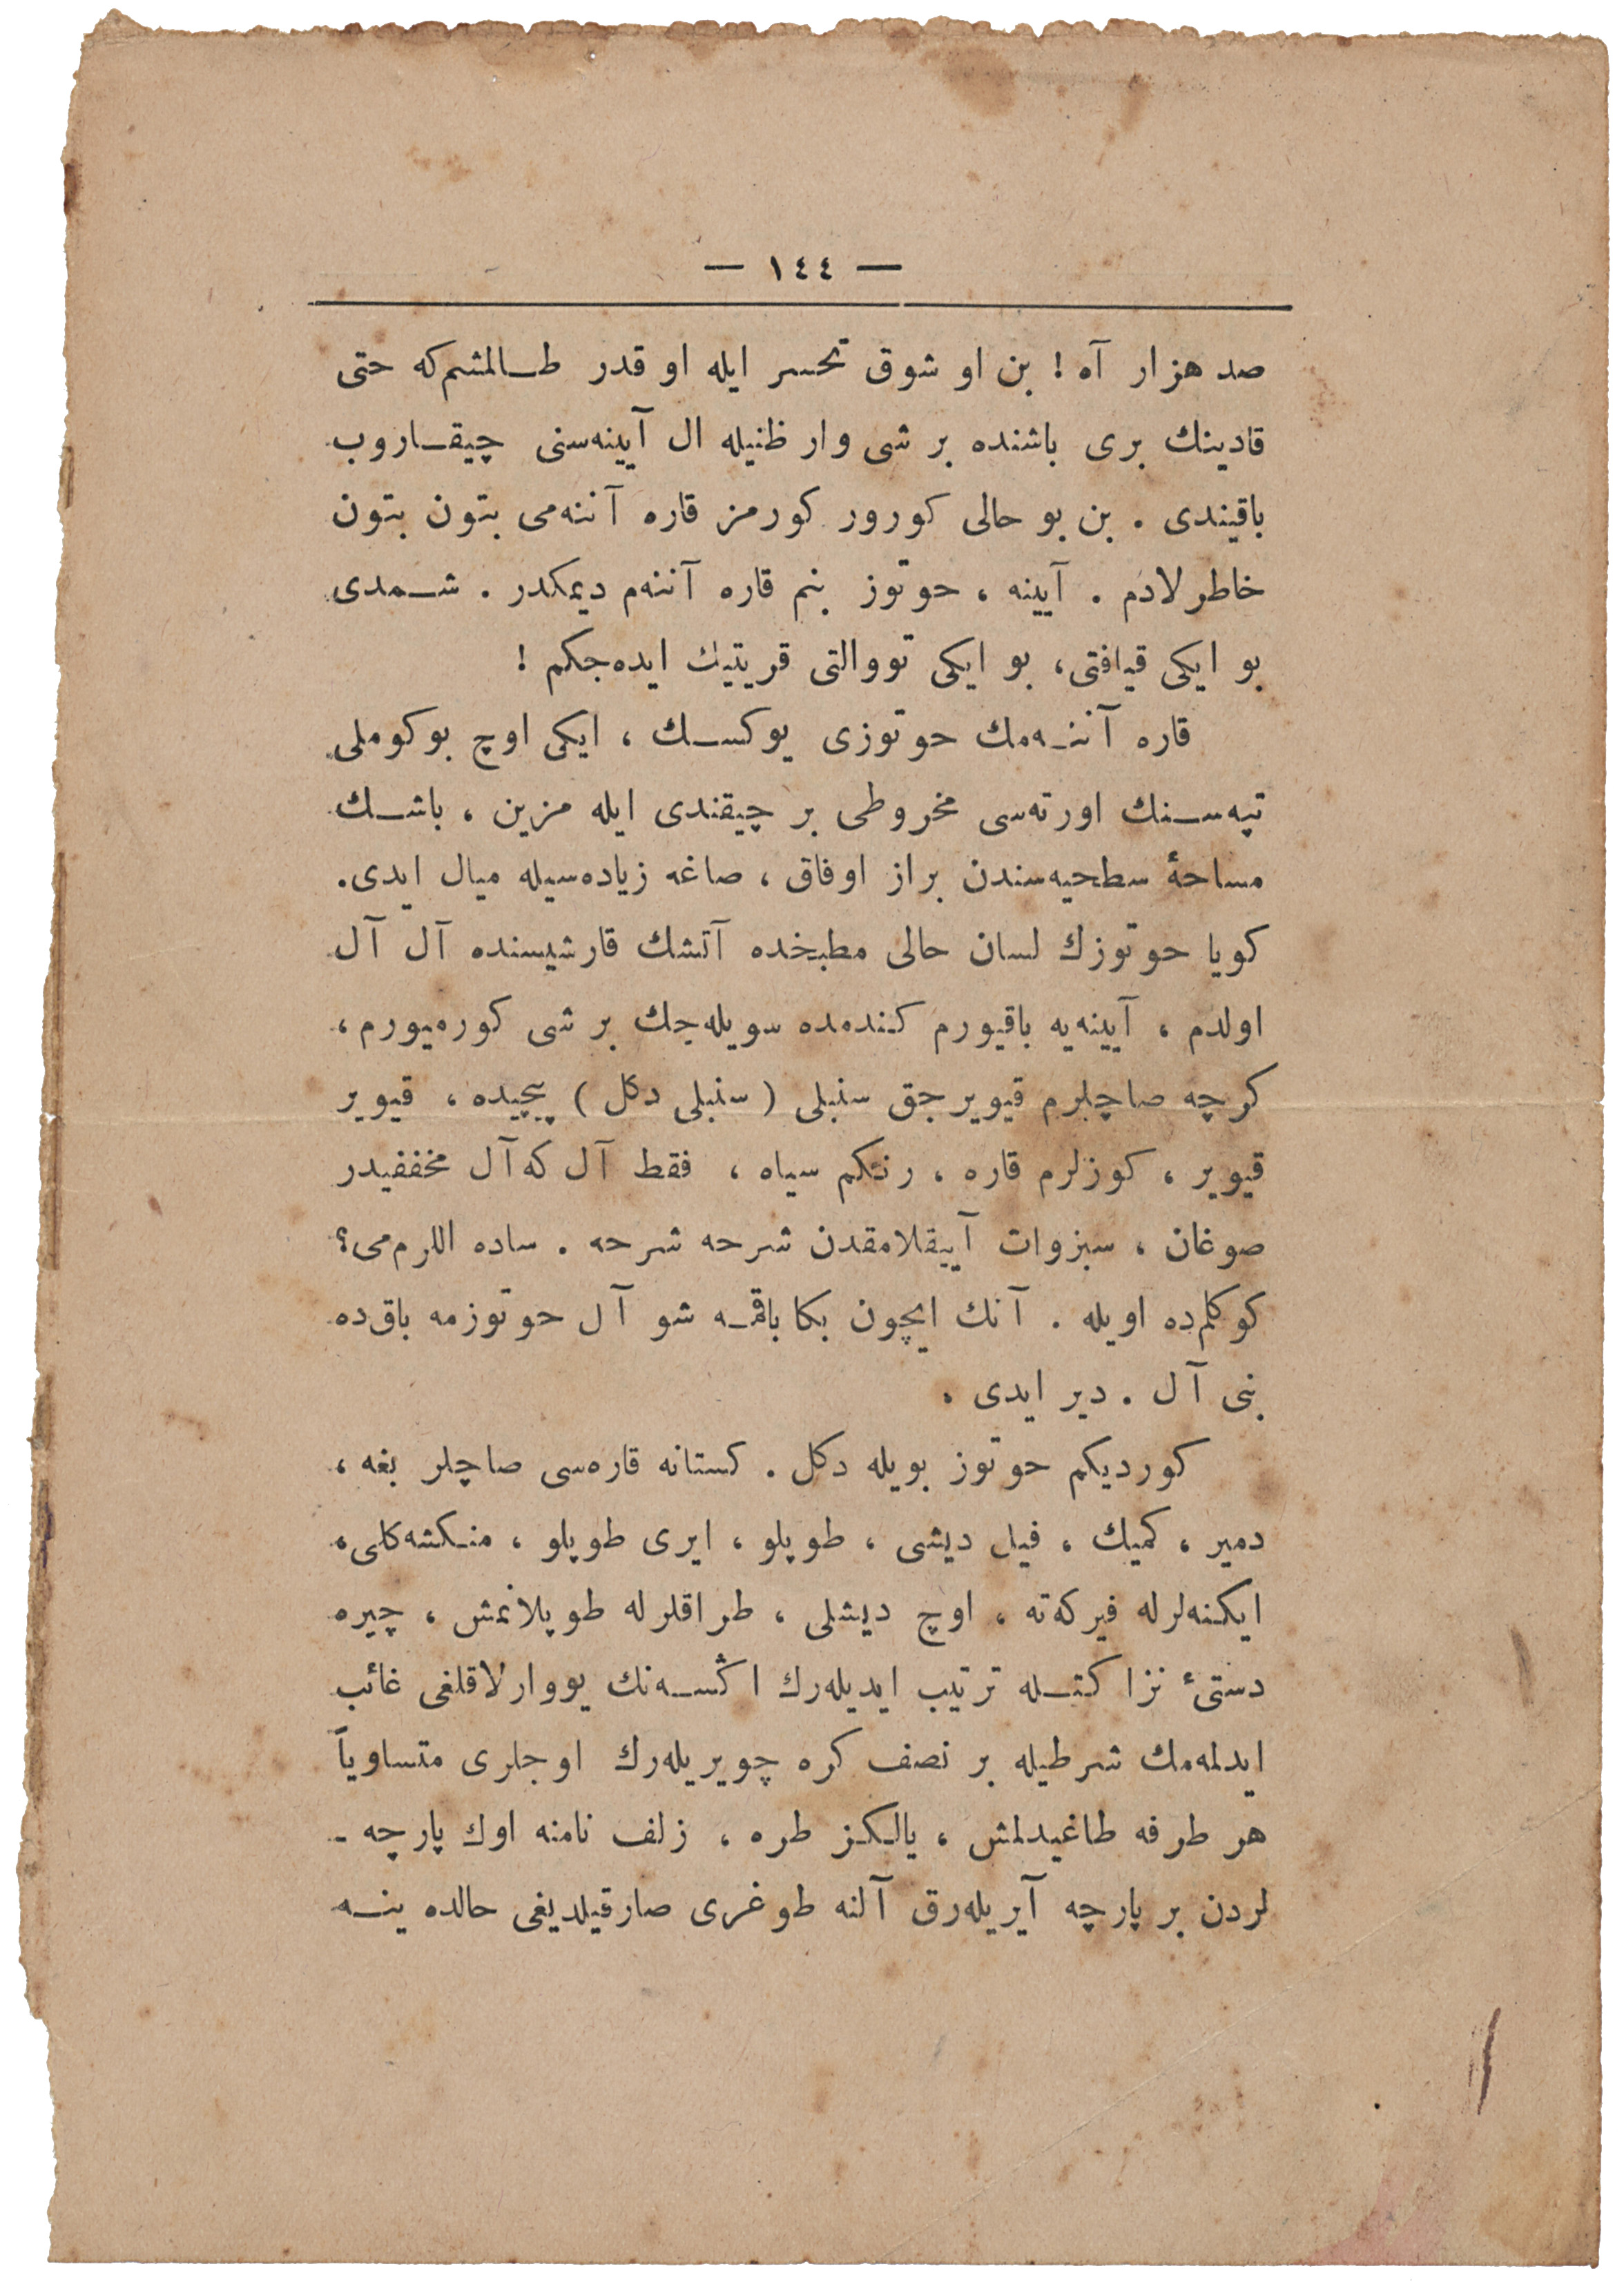 — ١٤٤ —
صد هزار آه ! بن او شوق تحسر ايله او قدر طـالمشم‌كه حتى
قادينك برى باشنده بر شى وار ظنيله ال آيينه‌سنى چيقـاروب
باقيندى . بن بو حالى كورور كورمز قاره آننه‌مى بتون بتون
خاطرلادم . آيينه ، حوتوز بنم قاره آننه‌م ديمكدر . شـمدى
بو ايكى قيافتى، بو ايكى تووالتى قريتيك ايده‌جكم !
قاره آننـه‌مك حوتوزى يوكسـك ، ايكى اوچ بوكوملى
تپه‌سـنك اورته‌سى مخروطى بر چيقندى ايله مزين ، باشـك
مساحۀ سطحيه‌سندن براز اوفاق ، صاغه زياده‌سيله ميال ايدى.
كويا حوتوزك لسان حالى مطبخده آتشك قارشيسنده آل آل
اولدم ، آيينه‌يه باقيورم كندمده سويله‌جك بر شى كورميورم،
كرچه صاچلرم قيويرجق سنبلى ( سنبلى دكل ) پيچيده ، قيوير
قيوير ، كوزلرم قاره ، رنكم سياه ، فقط آل كه آل مخففيدر
صوغان ، سبزوات آييقلامقدن شرحه شرحه . ساده اللرم‌مى؟
كوكلم‌ده اويله . آنك ايچون بكا باقمـه شو آل حوتوزمه باق‌ده
بنى آل . دير ايدى .
كورديكم حوتوز بويله دكل . كستانه قاره‌سى صاچلر بغه ،
دمير ، كميك ، فيل ديشى ، طوپلو ، ايرى طوپلو ، منـكشه‌كلى،
ايكنه‌لرله فيركته ، اوچ ديشلى ، طراقلرله طوپلانمش ، چيره
دستئ نزاكتـله ترتيب ايديله‌رك اڭسـه‌نك يووارلاقلغى غائب
ايدلمه‌مك شرطيله بر نصف كره چويريله‌رك اوجلرى متساوياً
هر طرفه طاغيدلمش ، يالـكز طره ، زلف نامنه اوك پارچه ـ
لردن بر پارچه آيريله‌رق آلنه طوغرى صارقيلديغى حالده ينـه